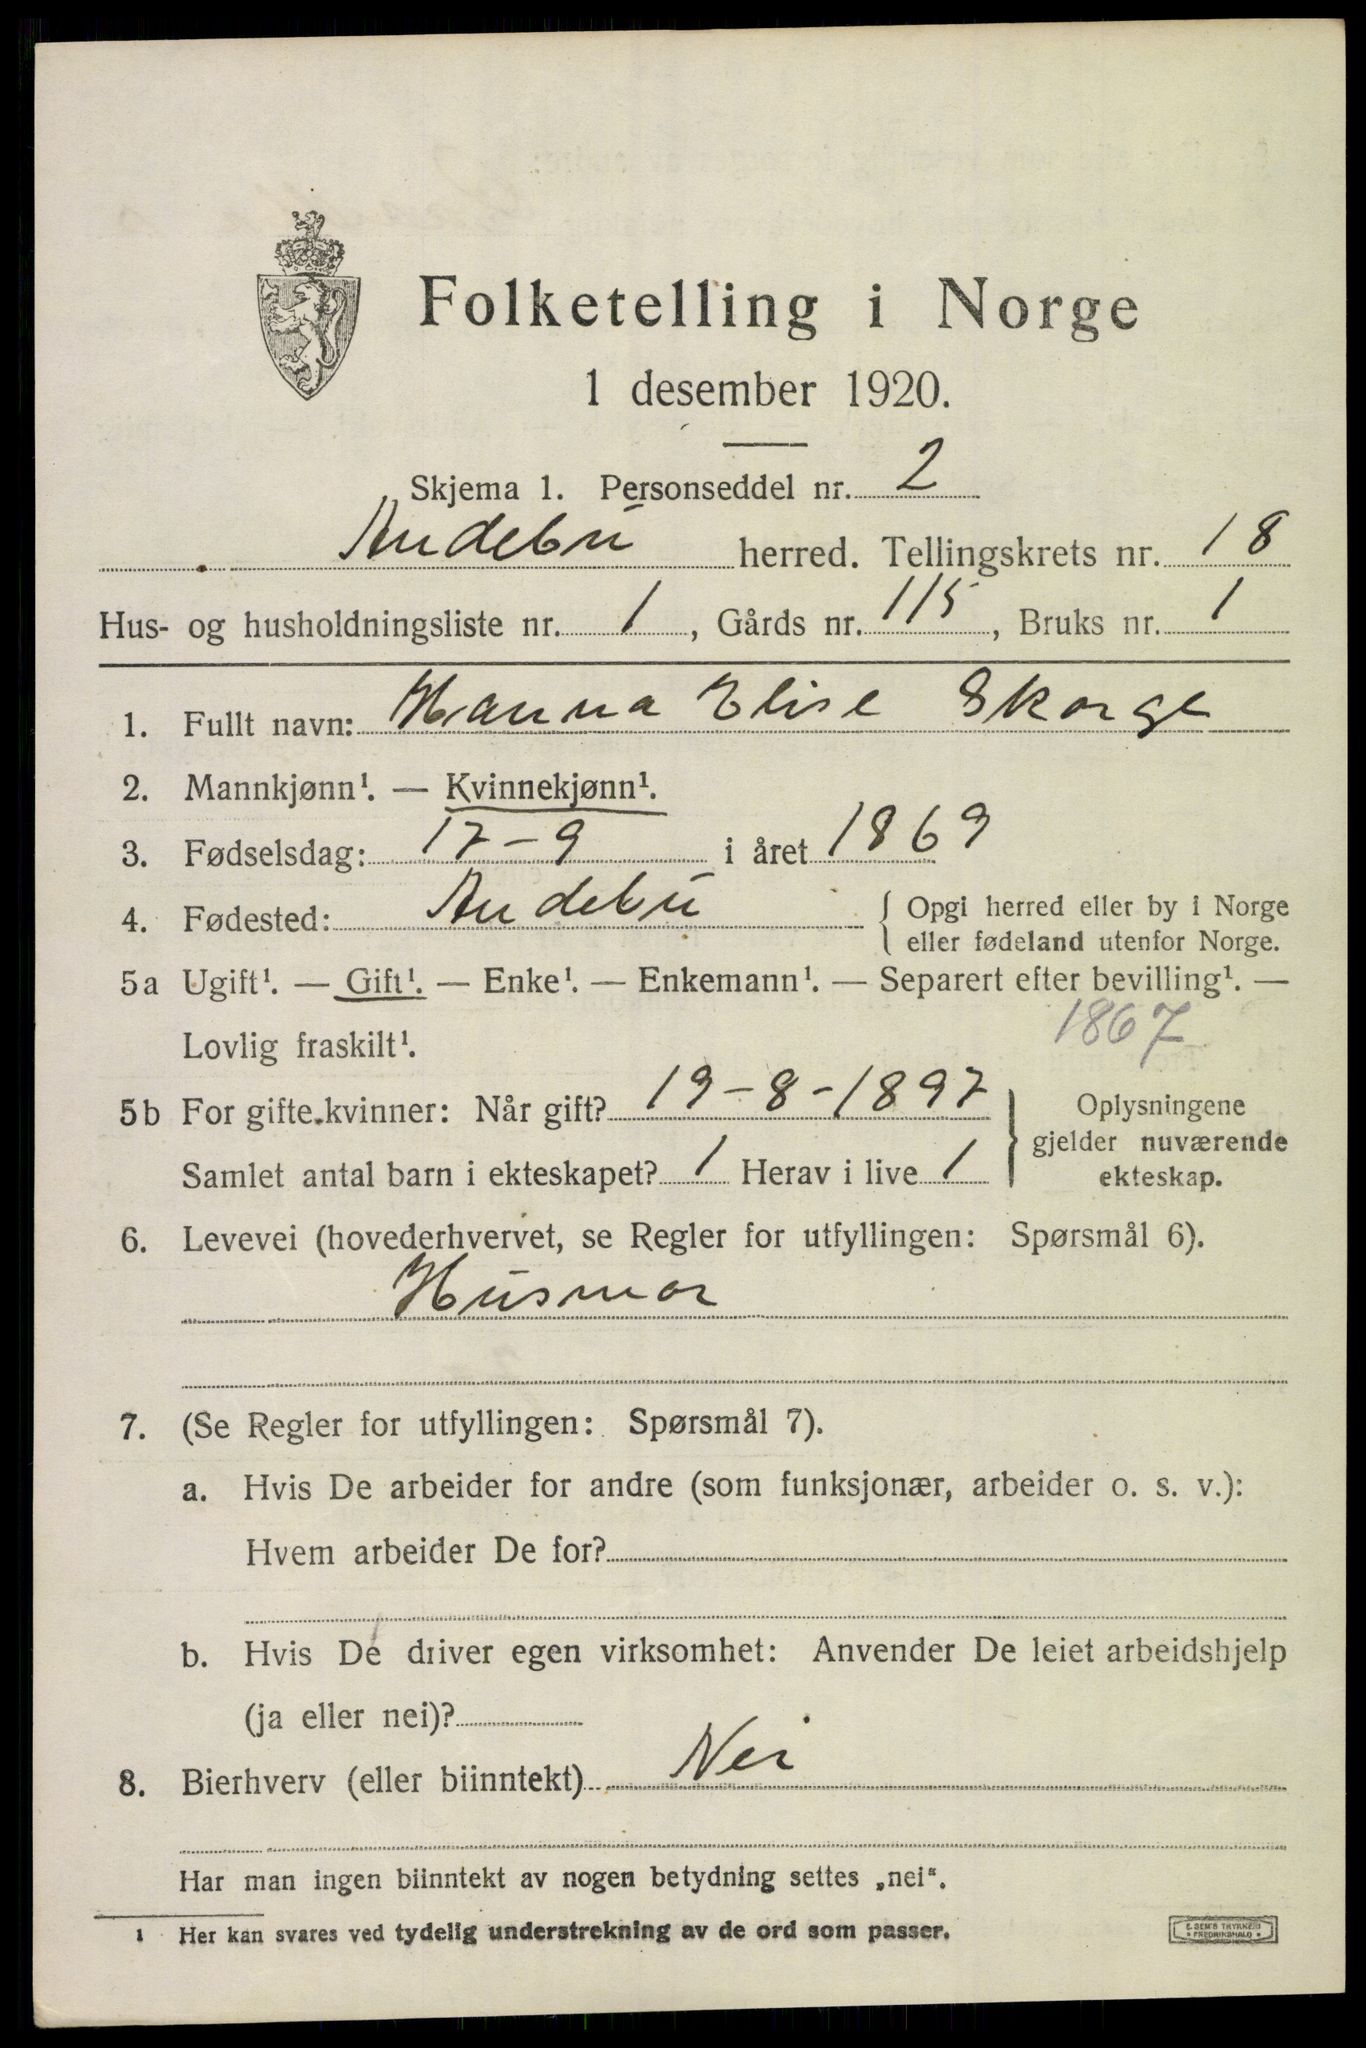 Folketelling i Norge
1 desember 1920.
Skjema 1. Personseddel nr. 2
Andebu herred. Tellingskrets nr. 18
Hus- og husholdningsliste nr. 1, Gårds nr. 115, Bruks nr. 1
1. Fullt navn: Hanna Elise Skorge
2. Mannkjønn¹. — Kvinnekjønn¹.
3. Fødselsdag: 17-9 i året 1869
4. Fødested: Andebu { Opgi herred eller by i Norge
eller fødeland utenfor Norge.
5a Ugift¹. — Gift¹. — Enke¹. — Enkemann¹. — Separert efter bevilling¹. —
Lovlig fraskilt¹. 1867
5b For gifte kvinner: Når gift? 19-8-1897
Samlet antal barn i ekteskapet? 1 Herav i live 1
} Oplysningene
gjelder nuværende
ekteskap.
6. Levevei (hovederhvervet, se Regler for utfyllingen: Spørsmål 6).
Husmor
7. (Se Regler for utfyllingen: Spørsmål 7).
a. Hvis De arbeider for andre (som funksjonær, arbeider o. s. v.):
Hvem arbeider De for?
b. Hvis De driver egen virksomhet: Anvender De leiet arbeidshjelp
(ja eller nei)?
8. Bierhverv (eller biinntekt) Nei
Har man ingen biinntekt av nogen betydning settes „nei“.
1 Her kan svares ved tydelig understrekning av de ord som passer.
E. SEM'S TRYKKERI
FREDRIKSHALD